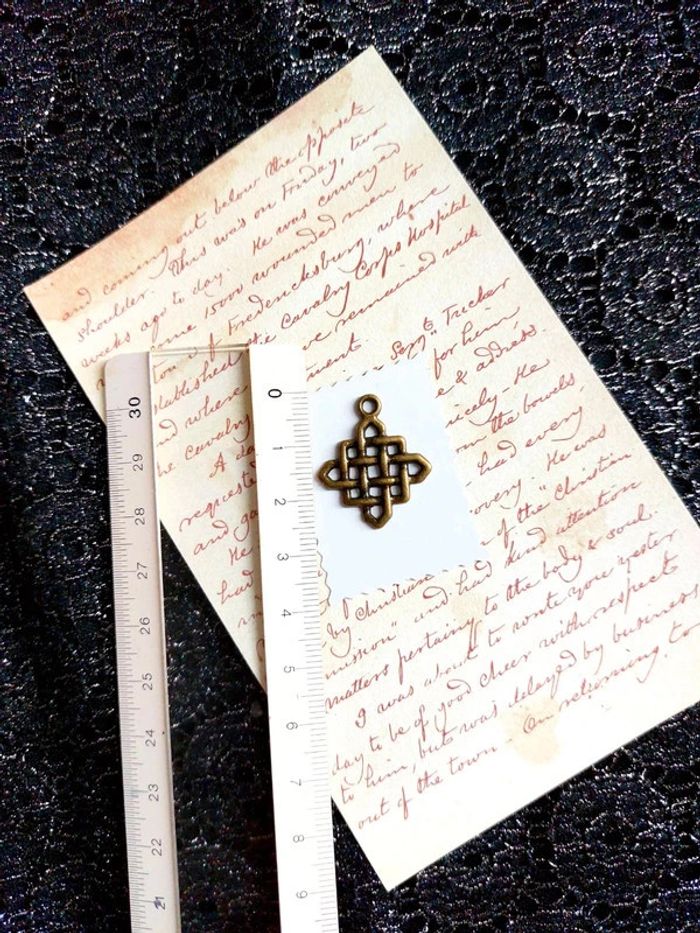 and coming out below the opposite
shoulder. This was on Friday, two
weeks ago to day. He was conveyed
some 15000 wounded men to
of Fredericksburg, where
Cavalry Corps Hospital
remained with
Septr Tucker
for him
& address.
requested
nicely - He
the bowels,
had every
He was
of the "Christian
by Christian
mission" and had kind attention
matters pertaining to the body & soul.
I was about to write you yester
day to be of good cheer with respect
to him, but was delayed by business
out of the town - On returning to
0
1
2
3
4
5
6
7
8
9
30
29
28
27
26
25
24
23
22
21